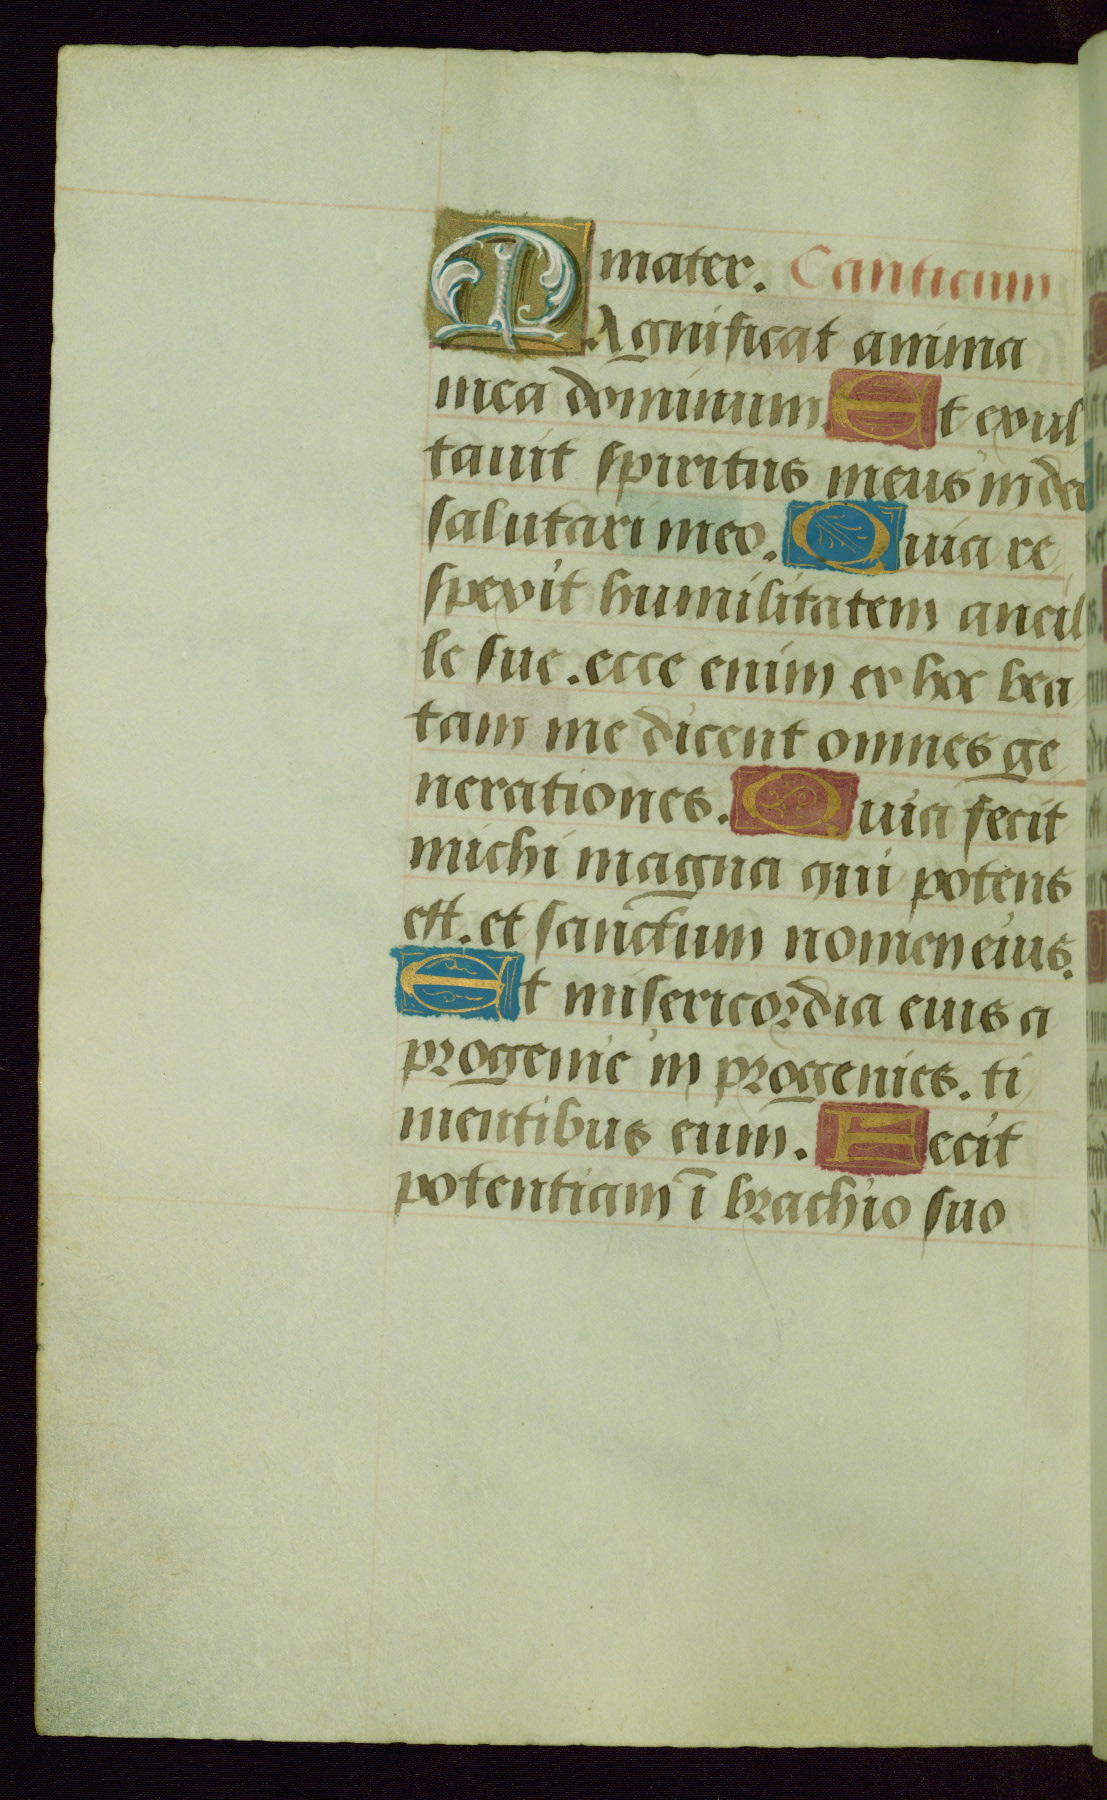 mater. Canticum
MAgnificat anima
mea dominum. Et exul
tauit spiritus meus in deo
salutari meo. Quia re
spexit humilitatem ancil
le sue. ecce enim ex hoc bea
tam me dicent omnes ge
nerationes. Quia fecit
michi magna qui potens
est. et sanctum nomen eius.
Et misericordia eius a
progenie in progenies. ti
mentibus eum. Fecit
potentiam ī brachio suo